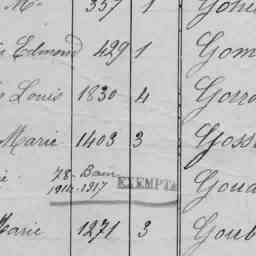 M. 357 1
Edmond 429 1 Gom
Louis 1830 4 Gorr
Marie 1403 3 Goss
78 - Bain
1914-1917 EXEMPTÉ Goua
Marie 1271 3 Goub